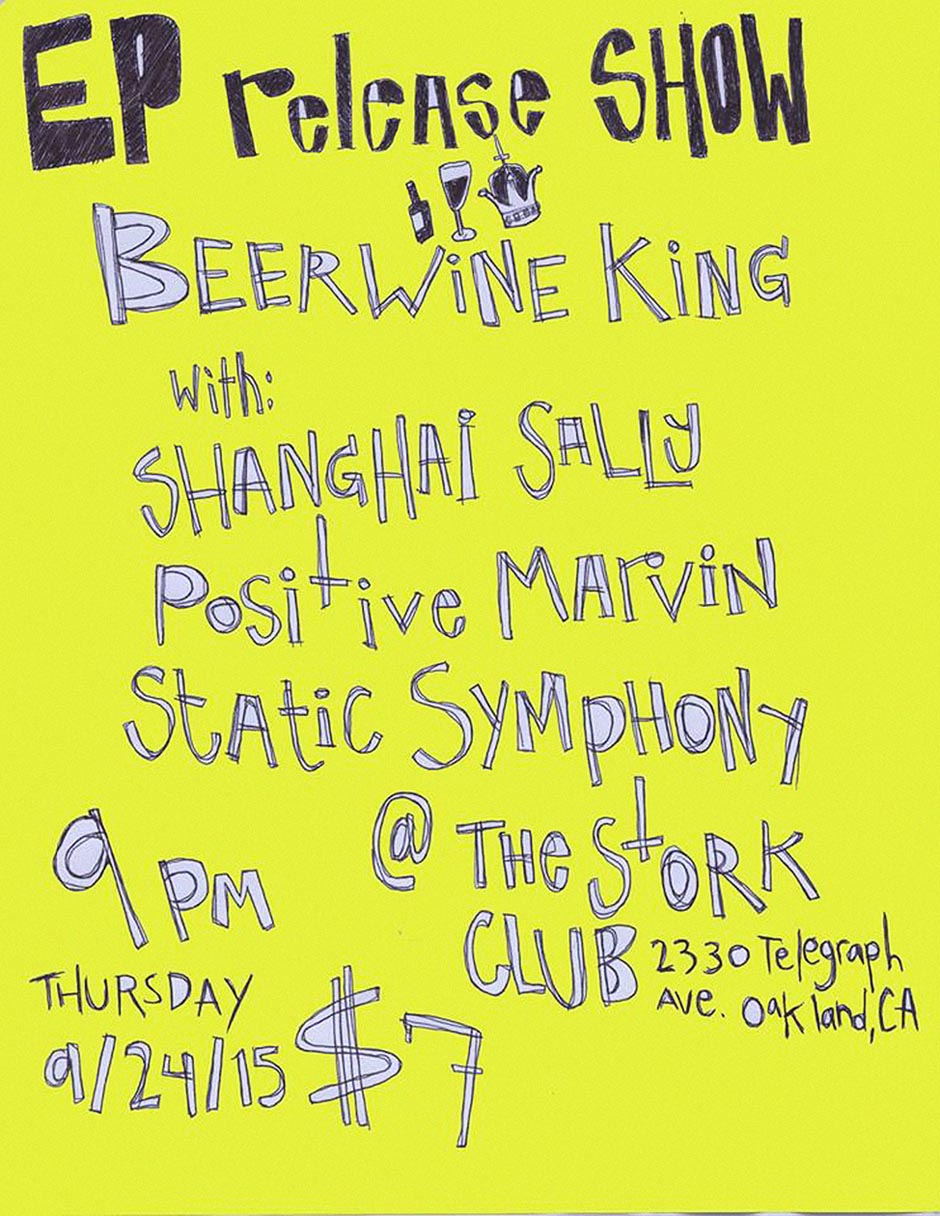 EP release SHOW
BEERWiNE KiNG
with:
SHANGHAi SALLy
Positive MArviN
StAtic SyMpHONy
9 PM @ THe StORK
CLUB 2330 Telegraph
Ave. Oakland, CA
THURSDAY
9/24/15 $7